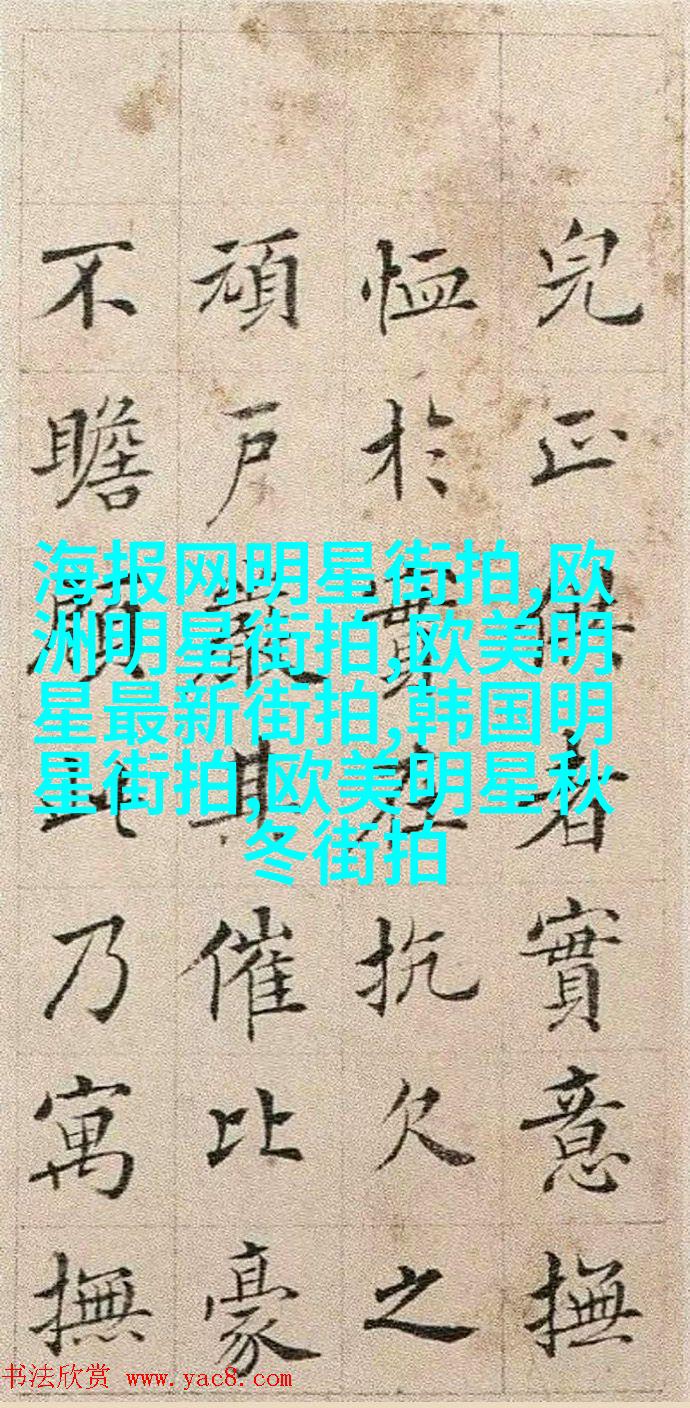 完正供者實意撫
恤於實在抗欠之
頑户嚴其催比豪
不瞻顧此乃寓撫
海报网明星街拍,欧
洲明星街拍,欧美明
星最新街拍,韩国明
星街拍,欧美明星秋
冬街拍
书法欣赏 www.yac8.com